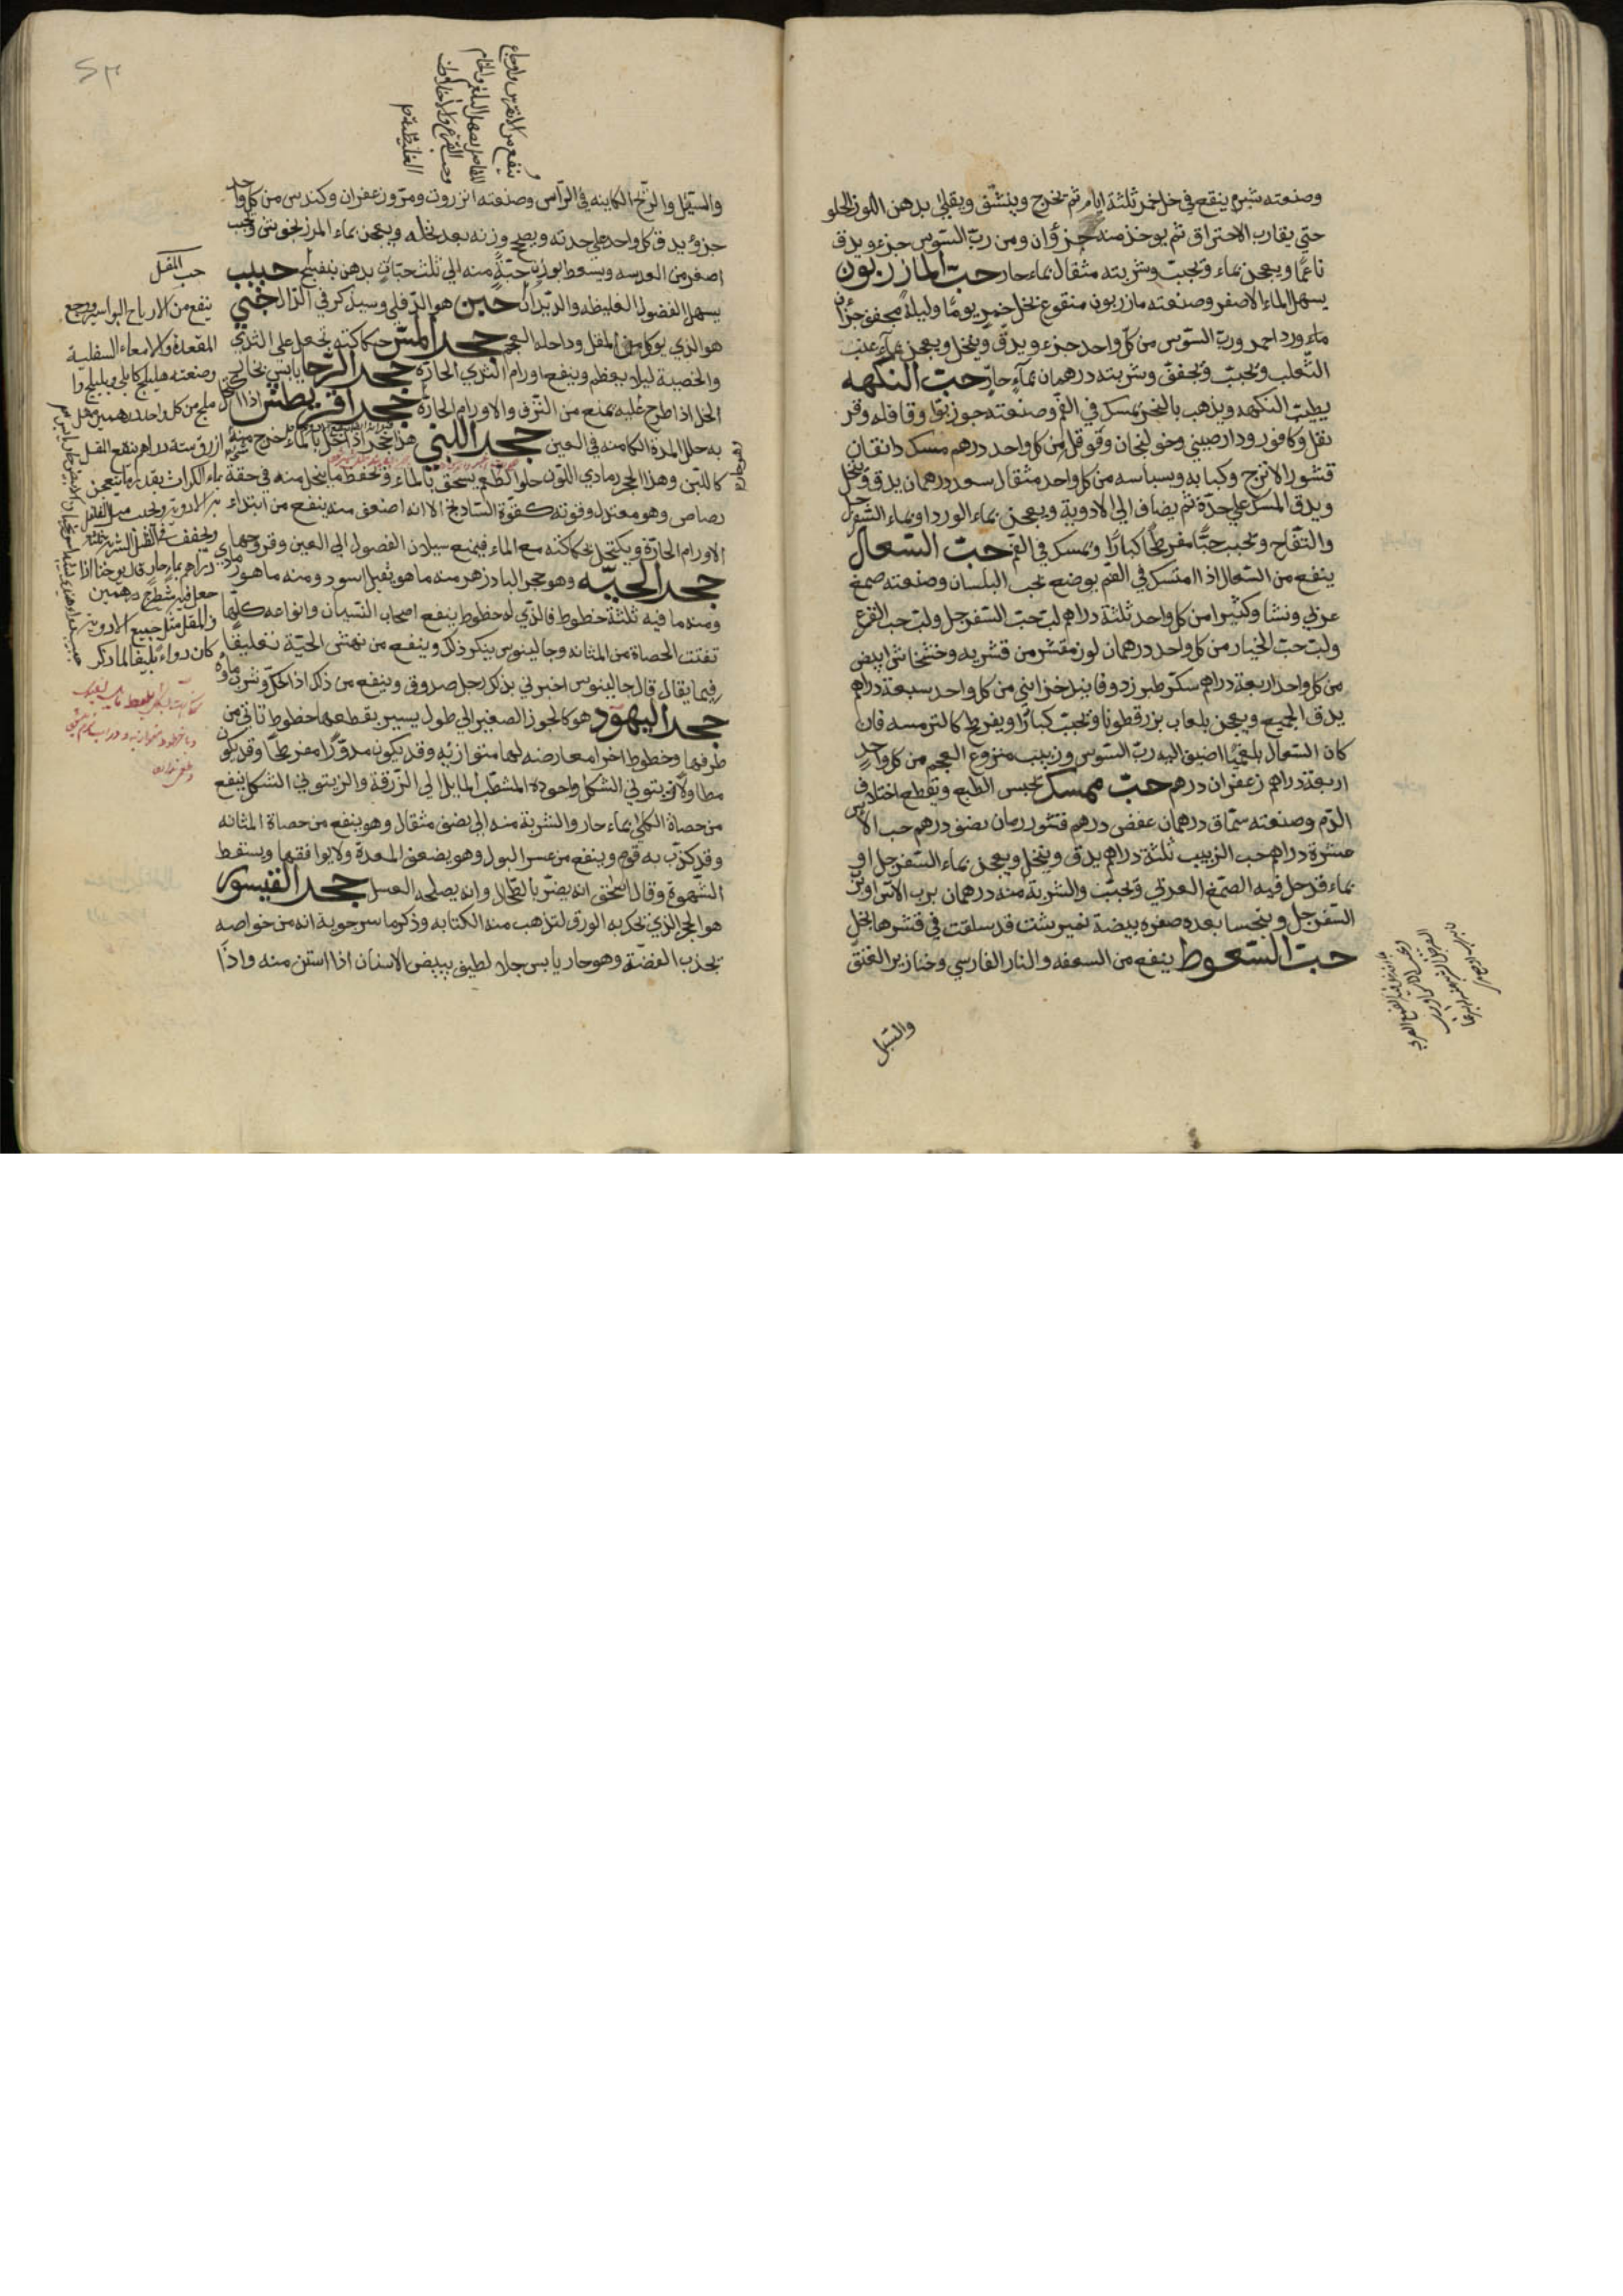 وصنعته شبرم ينقع في خل خمر ثلثة ايام ثم يخرج وينشق ويقلي بدهن اللوز الحلو
حتي يقارب الاحتراق ثم يوخذ منه جزؤان ومن ربّ السوس جزء ويدق
ناعمًا ويعجن بماء ويحبب وشربته مثقال بماء حار حبّ المازريون
يسهل الماء الاصفر وصنعته مازريون منقوع بخل خمر يومًا وليلة مجفف جزآن
ماء ورد احمر وربّ السوس من كل واحد جزء ويدق وينخل ويعجن بماء عنب
الثعلب ويحبب ويجفف وشربته درهمان بماءٍ حارّ حبّ النكهه
يطيّب النكهه ويذهب بالبخر يمسك في الفم وصنعته جوز بوا وقاقله وقر
نفل وكافور ودارصيني وخولنجان وقوقل من كل واحد درهم مسك دانقان
قشور الاترج وكبابه وبسباسه من كل واحد مثقال سعد درهمان يدق وينخل
ويدق المسك علي حدّة ثم يضاف الي الادوية ويعجن بماء الورد او بماء السفرجل
والتفاح ويحبب حبًّا مفرطحًا كبارًا ويمسك في الفم حبّ السعال
ينفع من السعال اذا امسك في الفم يوضع بحب البلسان وصنعته صمغ
عربي ونشا وكثيرا من كل واحد ثلثة دراهم لبّ حبّ السفرجل ولبّ حب القرع
ولبّ حبّ الخيار من كل واحد درهمان لوز مقشر من قشريه وخشخاش ابيض
من كل واحد اربعة دراهم سكر طبرزد وفانيد خزايني من كل واحد سبعة دراهم
يدق الجميع ويعجن بلعاب بزر قطونا ويحبب كبارًا ويفرطح كالترمسه فان
كان السعال بلغميًّا اضيف اليه ربّ السوس وزبيب منزوع العجم من كل واحدٍ
اربعة دراهم زعفران درهم حبّ ممسك يحبس الطبع ويقطع اختلاف
الدّم وصنعته سمّاق درهمان عفص درهم قشور رمان نصف درهم حب الآس
عشرة دراهم حب الزبيب ثلثة دراهم يدق وينخل ويعجن بماء السفرجل او
بماء قد حل فيه الصمغ العربي ويحبب والشربة منه درهمان بربّ الآس او بربّ
السفرجل ويتحسا بعده صفره بيضة نميرشت قد سلقت في قشرها بخلٍ
حبّ السّعوط ينفع من السعفه والنار الفارسي وخنازير العنق
والسّبل
والسّبل والرّيح الكاينه في الرّأس وصنعته انزروت ومرّ وزعفران وكندس من كل واحد
جزؤ يدق كل واحد علي حدته ويصحح وزنه بعد نخله ويعجن بماء المرزنجوش ويحب
اصغر من العدسه ويسعط بوزن حبّةٍ منه الي ثلث حبّات بدهن بنفسج حبيب
يسهل الفضول الغليظه والديدان حبن هو الدّفلي وسيذكر في الدّال حتي
هو الذي يوكل من المقل وداخله العجم حجر المسن حكاكته تجعل علي الثدي
والخصية ليلا يعظم وينفع اورام الثدي الحارّة حجر الرّحا يابس بخار
الخل اذا طرح عليه يمنع من النزف والاورام الحارّة حجر افريطش اذا اكتحل
به حلل المدة الكامنه في العين حجر اللبني هو حجر اذا حل بالماء خرج منه
كاللبن وهذا الحجر رمادي اللون حلو الطعم يسحق بالماء ويحفظ ما ينحل منه في حقة
رصاص وهو معتدل وقوته كقوّة الشادنج الا انه اضعف منه ينفع من ابتداء
الاورام الحارّة ويكتحل بحكاكته مع الماء فيمنع سيلان الفضول الي العين وقروحها
حجر الحيّه وهو حجر البادزهر منه ما هو ثقيل اسود ومنه ما هو رمادي
ومنه ما فيه ثلثة خطوط فالذي له خطوط ينفع اصحاب النسيان وانواعه كلّها
تفتت الحصاة من المثانه وجالينوس ينكر ذلك وينفع من نهش الحيّة تعليقًا
فيما يقال قال جالينوس اخبرني بذلك رجل صدوق وينفع من ذلك اذا حكّ وشرب ماؤه
حجر اليهود هو كالجوز الصغير الي طول يسير يقطعها خطوط تاتي من
طرفها وخطوط اخر معارضه لها متوازيه وقد يكون مدوّرًا مفرطحًا وقد يكون
مطاولًا زيتوني الشكل واجوده المشطّب المايل الي الزرقة والزيتوني الشكل ينفع
من حصاة الكلي بماء حار والشربة منه الي نصف مثقال وهو ينفع من حصاة المثانه
وقد كذّب به قوم وينفع من عسر البول وهو يضعف المعدة ولا يوافقها ويسقط
الشهوة وقال اسحق انه يضرّ بالطحال وانه يصلحه العسل حجر القيسور
هو الحجر الذي يحك به الورق لتذهب منه الكتابه وذكر ماسرجويه انه من خواصه
يجذب الفضّة وهو حار يابس جلاء لطيف يبيض الاسنان اذا استن منه واذا
حب المقل
ينفع من الارياح البواسير ووجع
المقعدة والامعاء السفلية
وصنعته هليلج كابلي وبليلج وا
ملج من كل واحد درهمين مقل
ازرق ستة دراهم ينقع المقل
بماء الكراث بقدر ما يعجن
به الادوية ويحبب مثل الفلفل
ويجفف في الظل الشربة ثلثة
دراهم بماء حار قال يوحنا اذا
جعل فيه شطرج درهمين
والمقل مثل جميع الادوية
كان دواءً بليغًا لما ذكر
ينفع من النقرس واوجاع
المفاصل يسهل البلغم والخام
وحب القرع والاخلاط
الغليظة